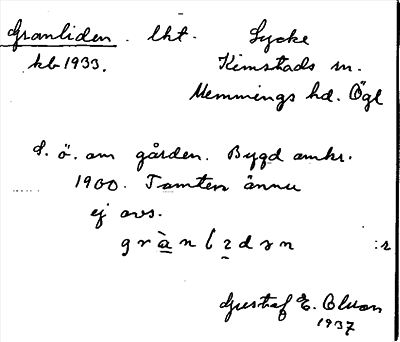 Granliden. lht. Lycke
kb 1933. Kimstads sn.
Memmings hd. Ögl
S. ö. om gården. Bygd omkr.
1900. Tomten ännu
ej avs.
:r
Gustaf E. Olson
1937